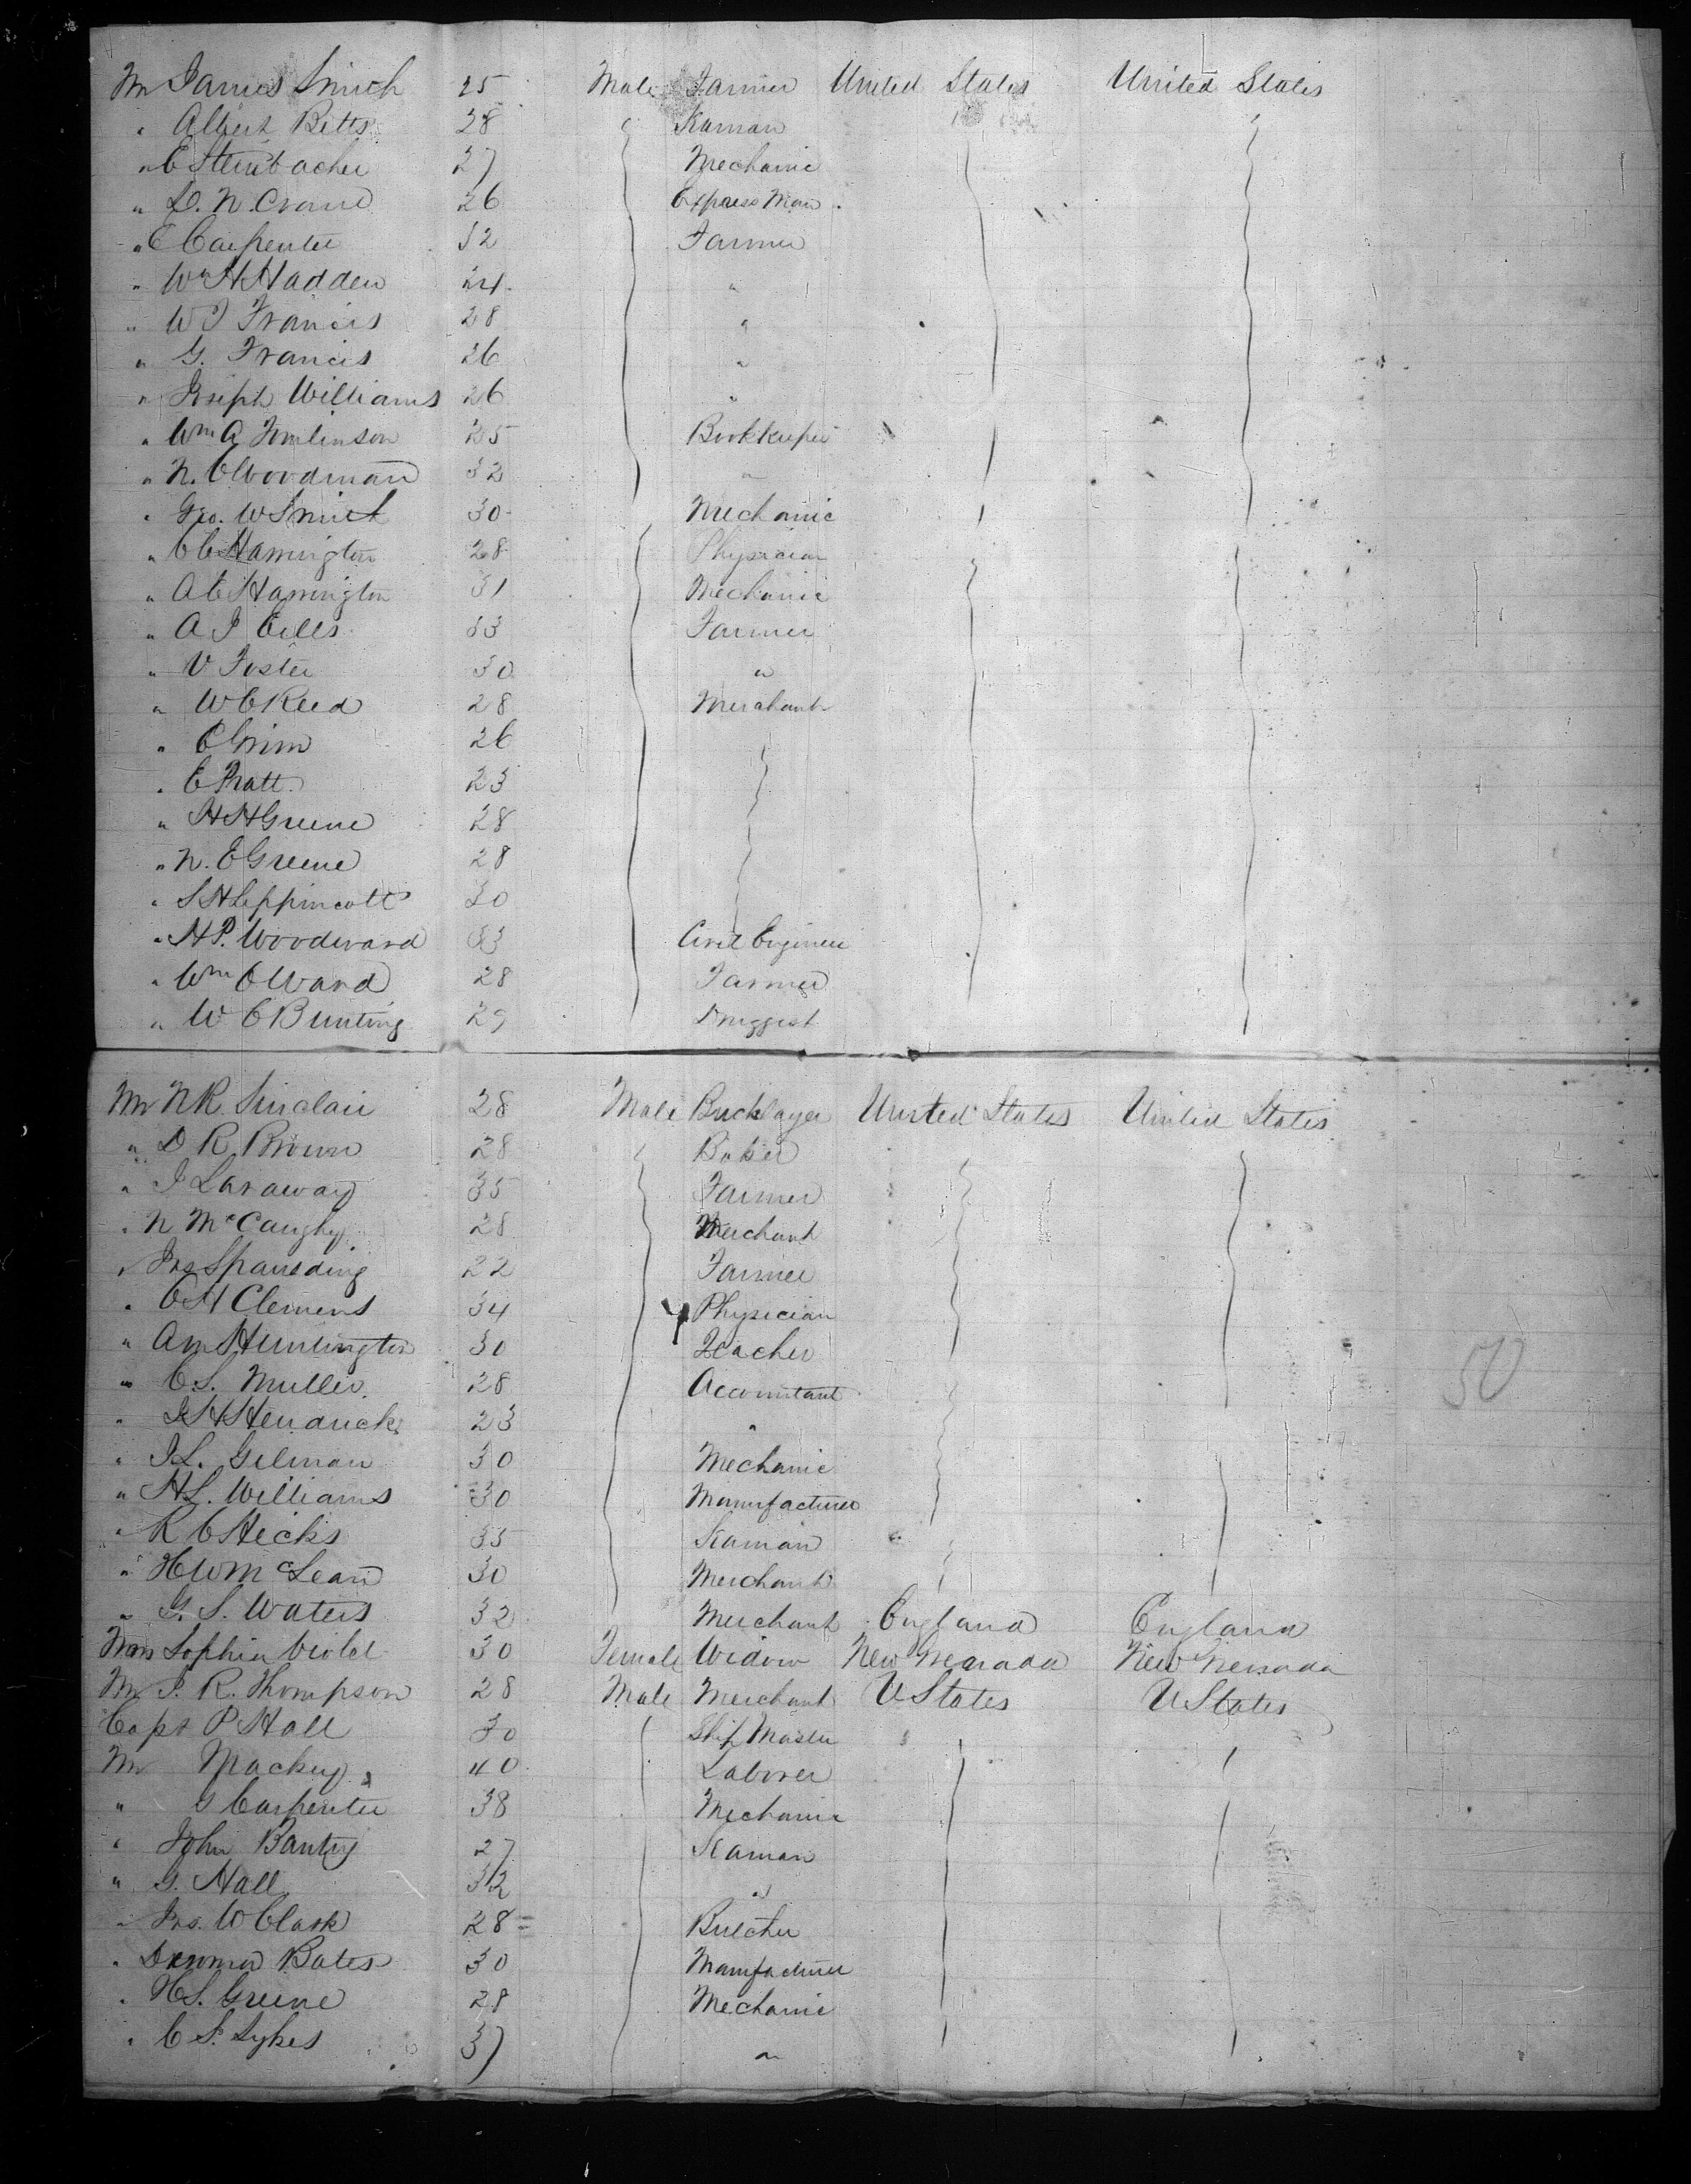 Mr James Smith 25 Male Farmer United States United States
" Albert Betts 28 Seaman
" C Steinbacher 27 Mechanic
" L. N. Crane 26 Express Man
" E Carpenter 32 Farmer
" Wm H Hadden 24 "
" W J Francis 28 "
" G. Francis 26 "
" Joseph Williams 26 "
" Wm A Tomlinson 25 Bookkeeper
" N. C Woodman 32 "
" Geo. W Smith 30 Mechanic
" C C Harrington 28 Physician
" A C Harrington 31 Mechanic
" A J Eells 33 Farmer
" V Foster 30 "
" W C Reed 28 Merchant
" C Grim 26
" E Pratt 23
" H H Greene 28
" N. E Greene 28
" S H Lippincott 30
" H P. Woodward 33 Civil Engineer
" Wm C Ward 28 Farmer
" W C Bunting 29 Druggist
Mr N R. Sinclair 28 Male Bricklayer United States United States
" D R Brown 28 Baker
" J Laraway 35 Farmer
" N McCaughy 28 Merchant
" Jas Spausding 22 Farmer
" C H Clemens 34 Physician
" Am Huntington 30 Teacher
" C. S. Muller 28 Accountant
" J H Hendricks 23 "
" J L. Gilman 30 Mechanic
" H L. Williams 30 Manufacturer
" R C Hicks 35 Seaman
" H W McLean 30 Merchant
" G. S. Waters 32 Merchant England England
Mrs Sophia Violet 30 Female Widow New Grenada New Grenada
Mr J. R. Thompson 28 Male Merchant U States U States
Capt P Hall 30 Ship Master
Mr Mackey 40 Laborer
" G Carpenter 38 Mechanic
" John Banty 27 Seaman
" G. Hall 32 "
" Jas. W Clark 28 Butcher
" Bates 30 Manufacturer
" H S. Greene 28 Mechanic
" C S. Sykes 37 "
50